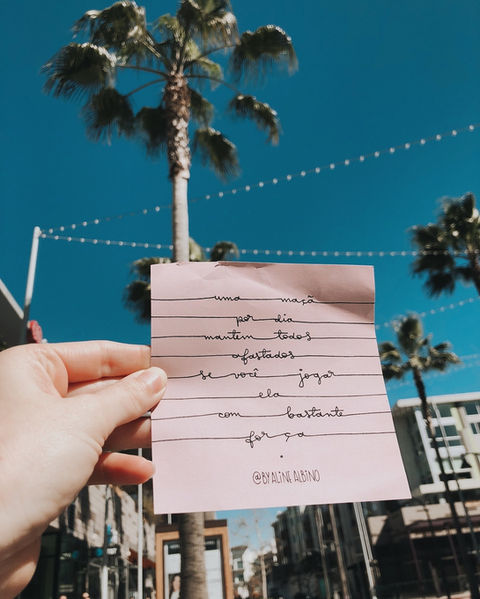 uma maçã
por dia
mantem todos
afastados
se você jogar
ela
com bastante
força
.
@BYALINEALBINO